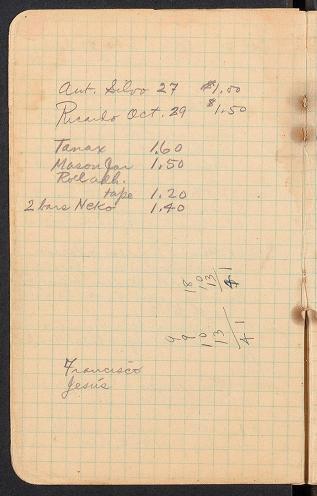 Ant. Silvo 27 $1.00
Ricardo Oct. 29 $1.50
Tanax 1.60
Mason Jar 1.50
Roll adh.
tape 1.20
2 bars Neko 1.40
18
10
13
41
9
9
10
13
41
Francisco
Jesús